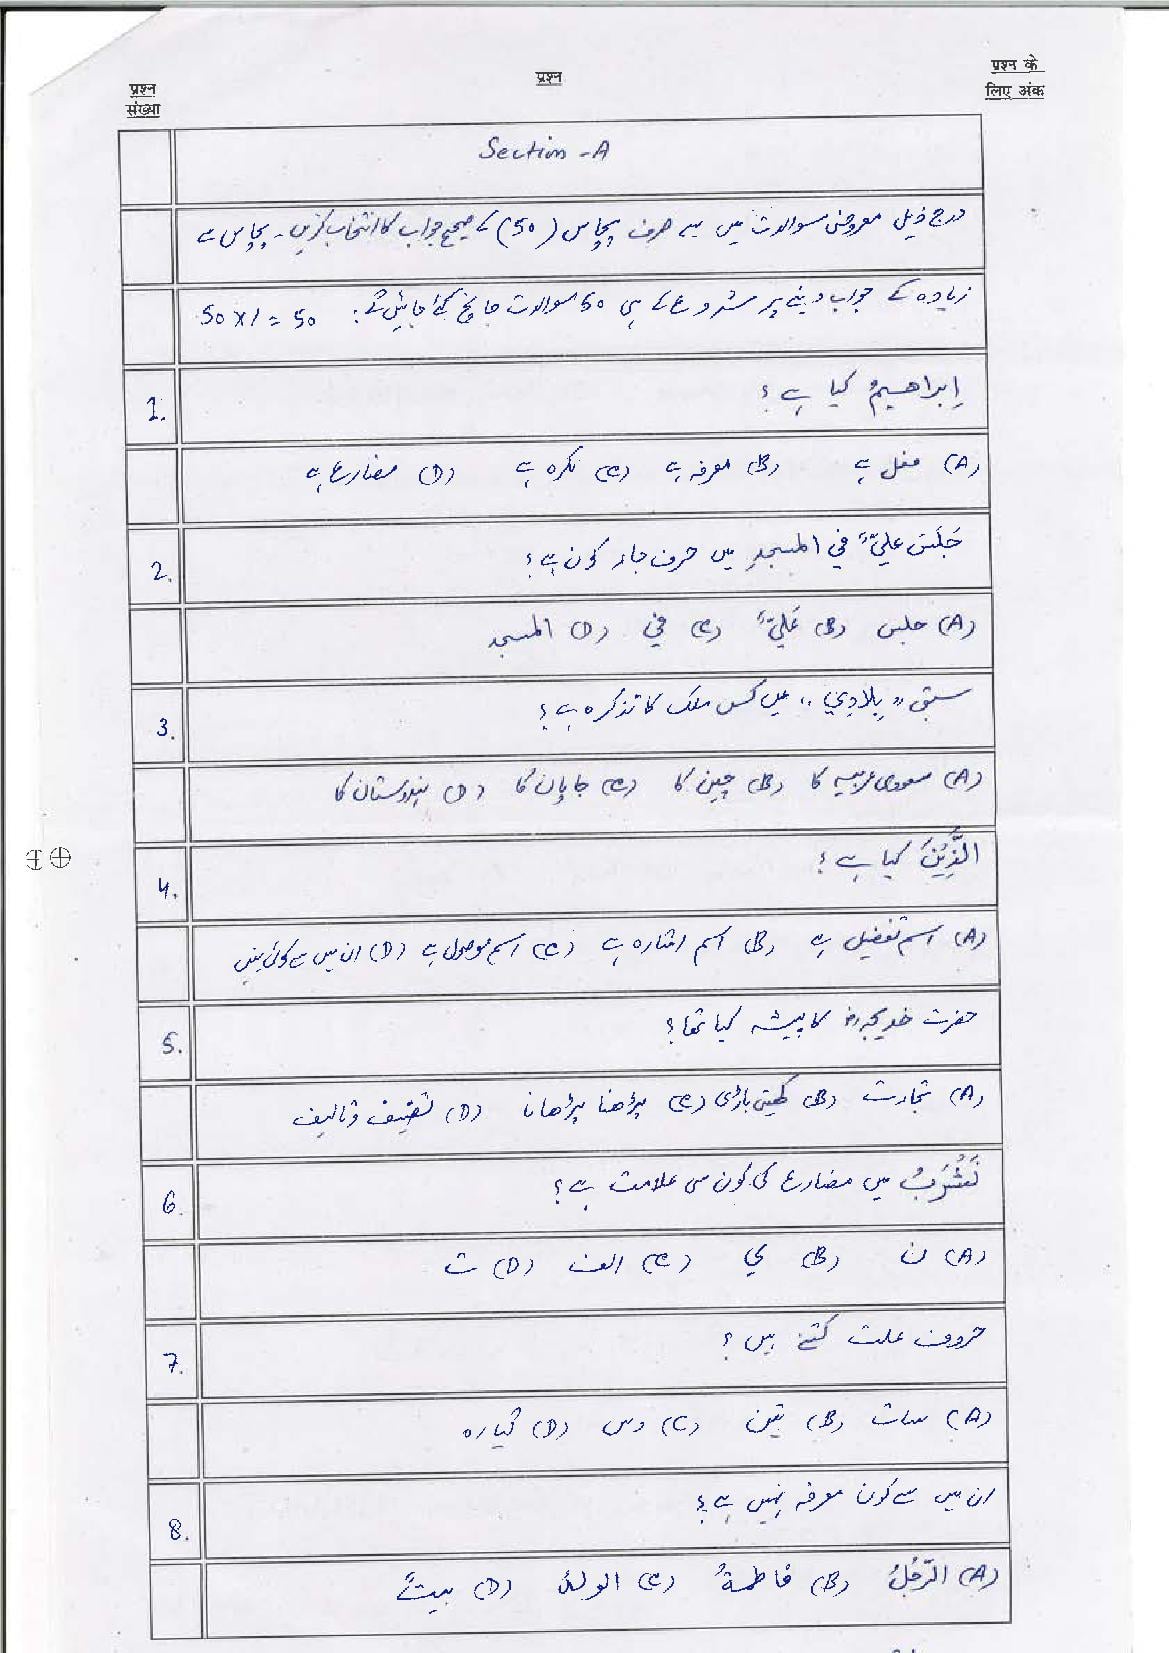 प्रश्न संख्या
प्रश्न
प्रश्न के लिए अंक
Section -A
درج ذیل معروضی سوالات میں سے صرف پچاس (50) کے صحیح جواب کا انتخاب کریں۔ پچاس سے
زیادہ کے جواب دینے پر شروع کے ہی 50 سوالات جانچ کئے جائیں گے: 50 x 1 = 50
1. إبراهيمُ کیا ہے؟
(A) فعل ہے (B) معرفہ ہے (C) نکرہ ہے (D) مضارع ہے
2. جَلَسَ عليٌّ في المسجدِ میں حرف جار کون ہے؟
(A) جلس (B) عَلِيٌّ (C) في (D) المسجد
3. سبق "بِلادِي" میں کس ملک کا تذکرہ ہے؟
(A) سعودی عربیہ کا (B) چین کا (C) جاپان کا (D) ہندوستان کا
4. الَّذِيْنَ کیا ہے؟
(A) اسم تفضیل ہے (B) اسم اشارہ ہے (C) اسم موصول ہے (D) ان میں سے کوئی نہیں
5. حضرت خدیجہؓ کا پیشہ کیا تھا؟
(A) تجارت (B) کھیتی باڑی (C) پڑھنا پڑھانا (D) تصنیف و تالیف
6. نَشْرَبُ میں مضارع کی کون سی علامت ہے؟
(A) ن (B) ي (C) الف (D) ت
7. حروف علت کتنے ہیں؟
(A) سات (B) تین (C) دس (D) گیارہ
8. ان میں سے کون معرفہ نہیں ہے؟
(A) الرّجُلُ (B) فاطمةُ (C) الولدُ (D) بيتٌ